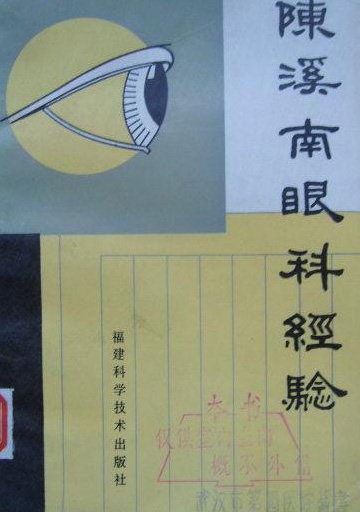 陳溪南眼科經驗
福建科学技术出版社
本书
概不外借